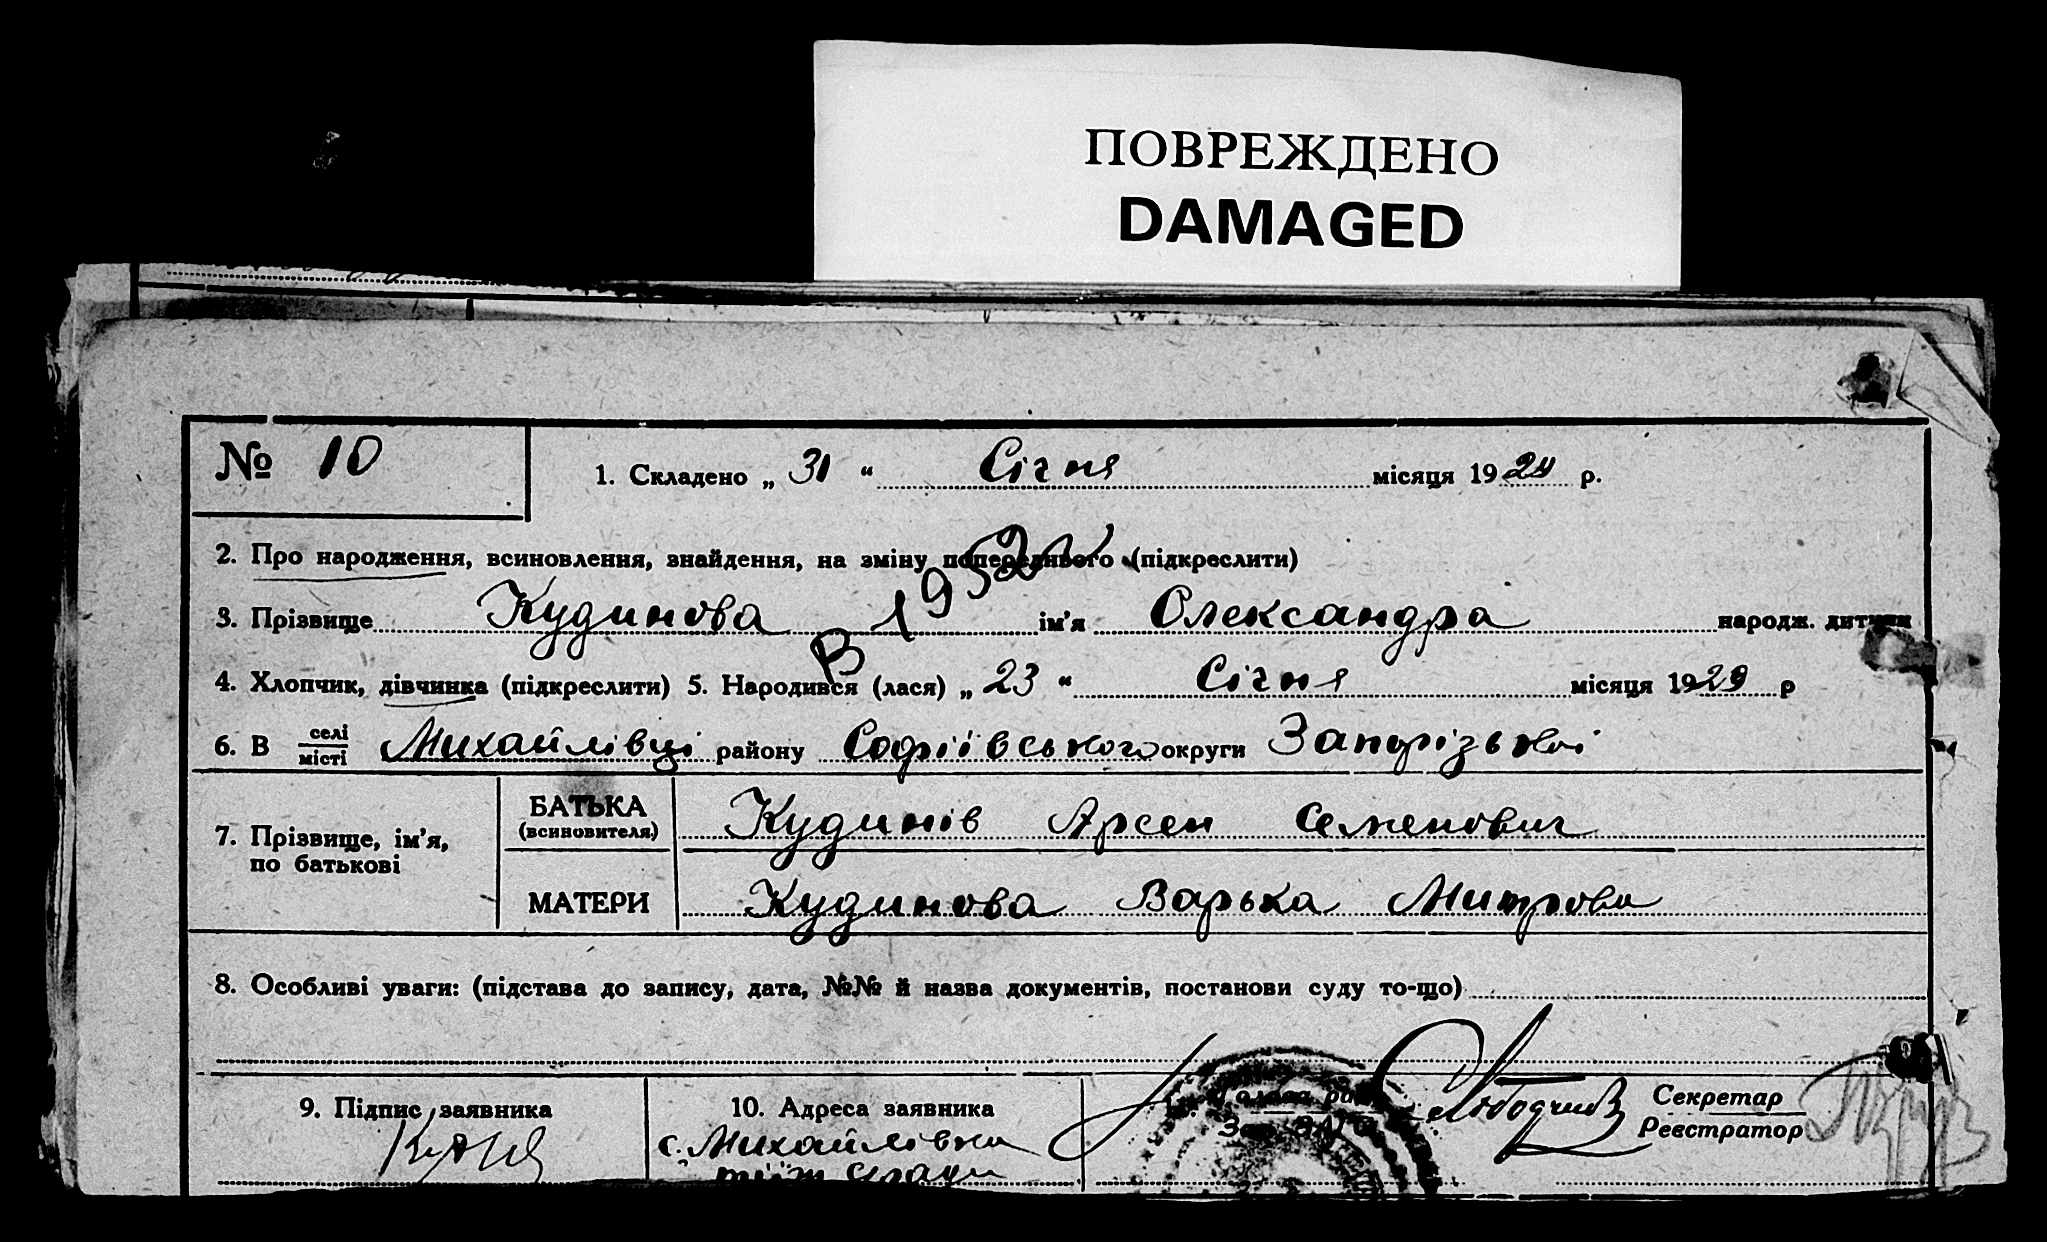 ПОВРЕЖДЕНО
DAMAGED
№ 10
1. Складено „ 31 “ Січня місяця 1929 р.
2. Про народження, всиновлення, знайдення, на зміну попереднього (підкреслити)
В 1952
3. Прізвище Кудинова ім’я Олександра народж. дитини
4. Хлопчик, дівчинка (підкреслити) 5. Народився (лася) „ 23 “ Січня місяця 1929 р
6. В селі місті Михайлівці району Софіївського округи Запорізької
7. Прізвище, ім’я, по батькові
БАТЬКА (всиновителя) Кудинів Арсен Семенович
МАТЕРИ Кудинова Варька Митрова
8. Особливі уваги: (підстава до запису, дата, №№ й назва документів, постанови суду то-що)
9. Підпис заявника
10. Адреса заявника
с. Михайлівка
тіїж Сради
Голова
Секретар
Реєстратор